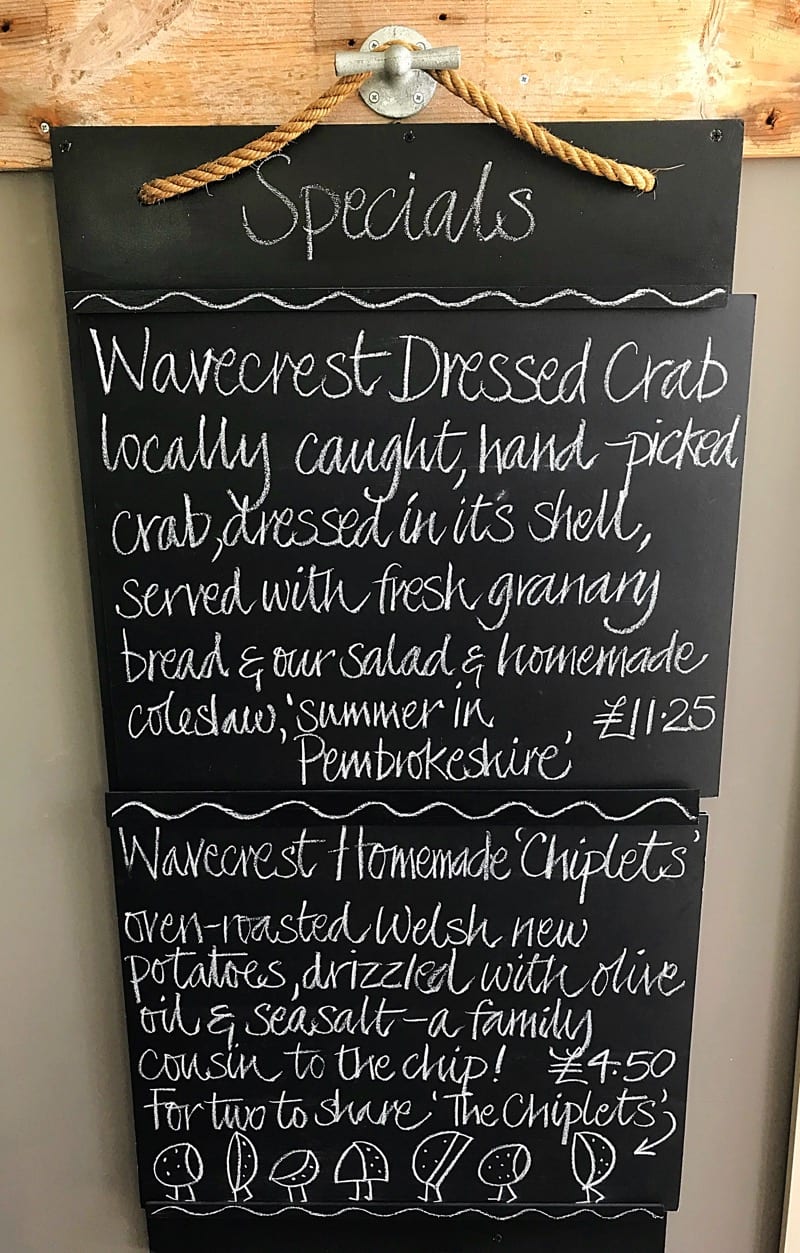 Specials
Wavecrest Dressed Crab
locally caught, hand-picked
crab, dressed in it's shell,
served with fresh granary
bread & our salad & homemade
coleslaw, 'summer in £11.25
Pembrokeshire'
Wavecrest Homemade 'Chiplets'
oven-roasted Welsh new
potatoes, drizzled with olive
oil & seasalt - a family
cousin to the chip! £4.50
For two to share 'The Chiplets'